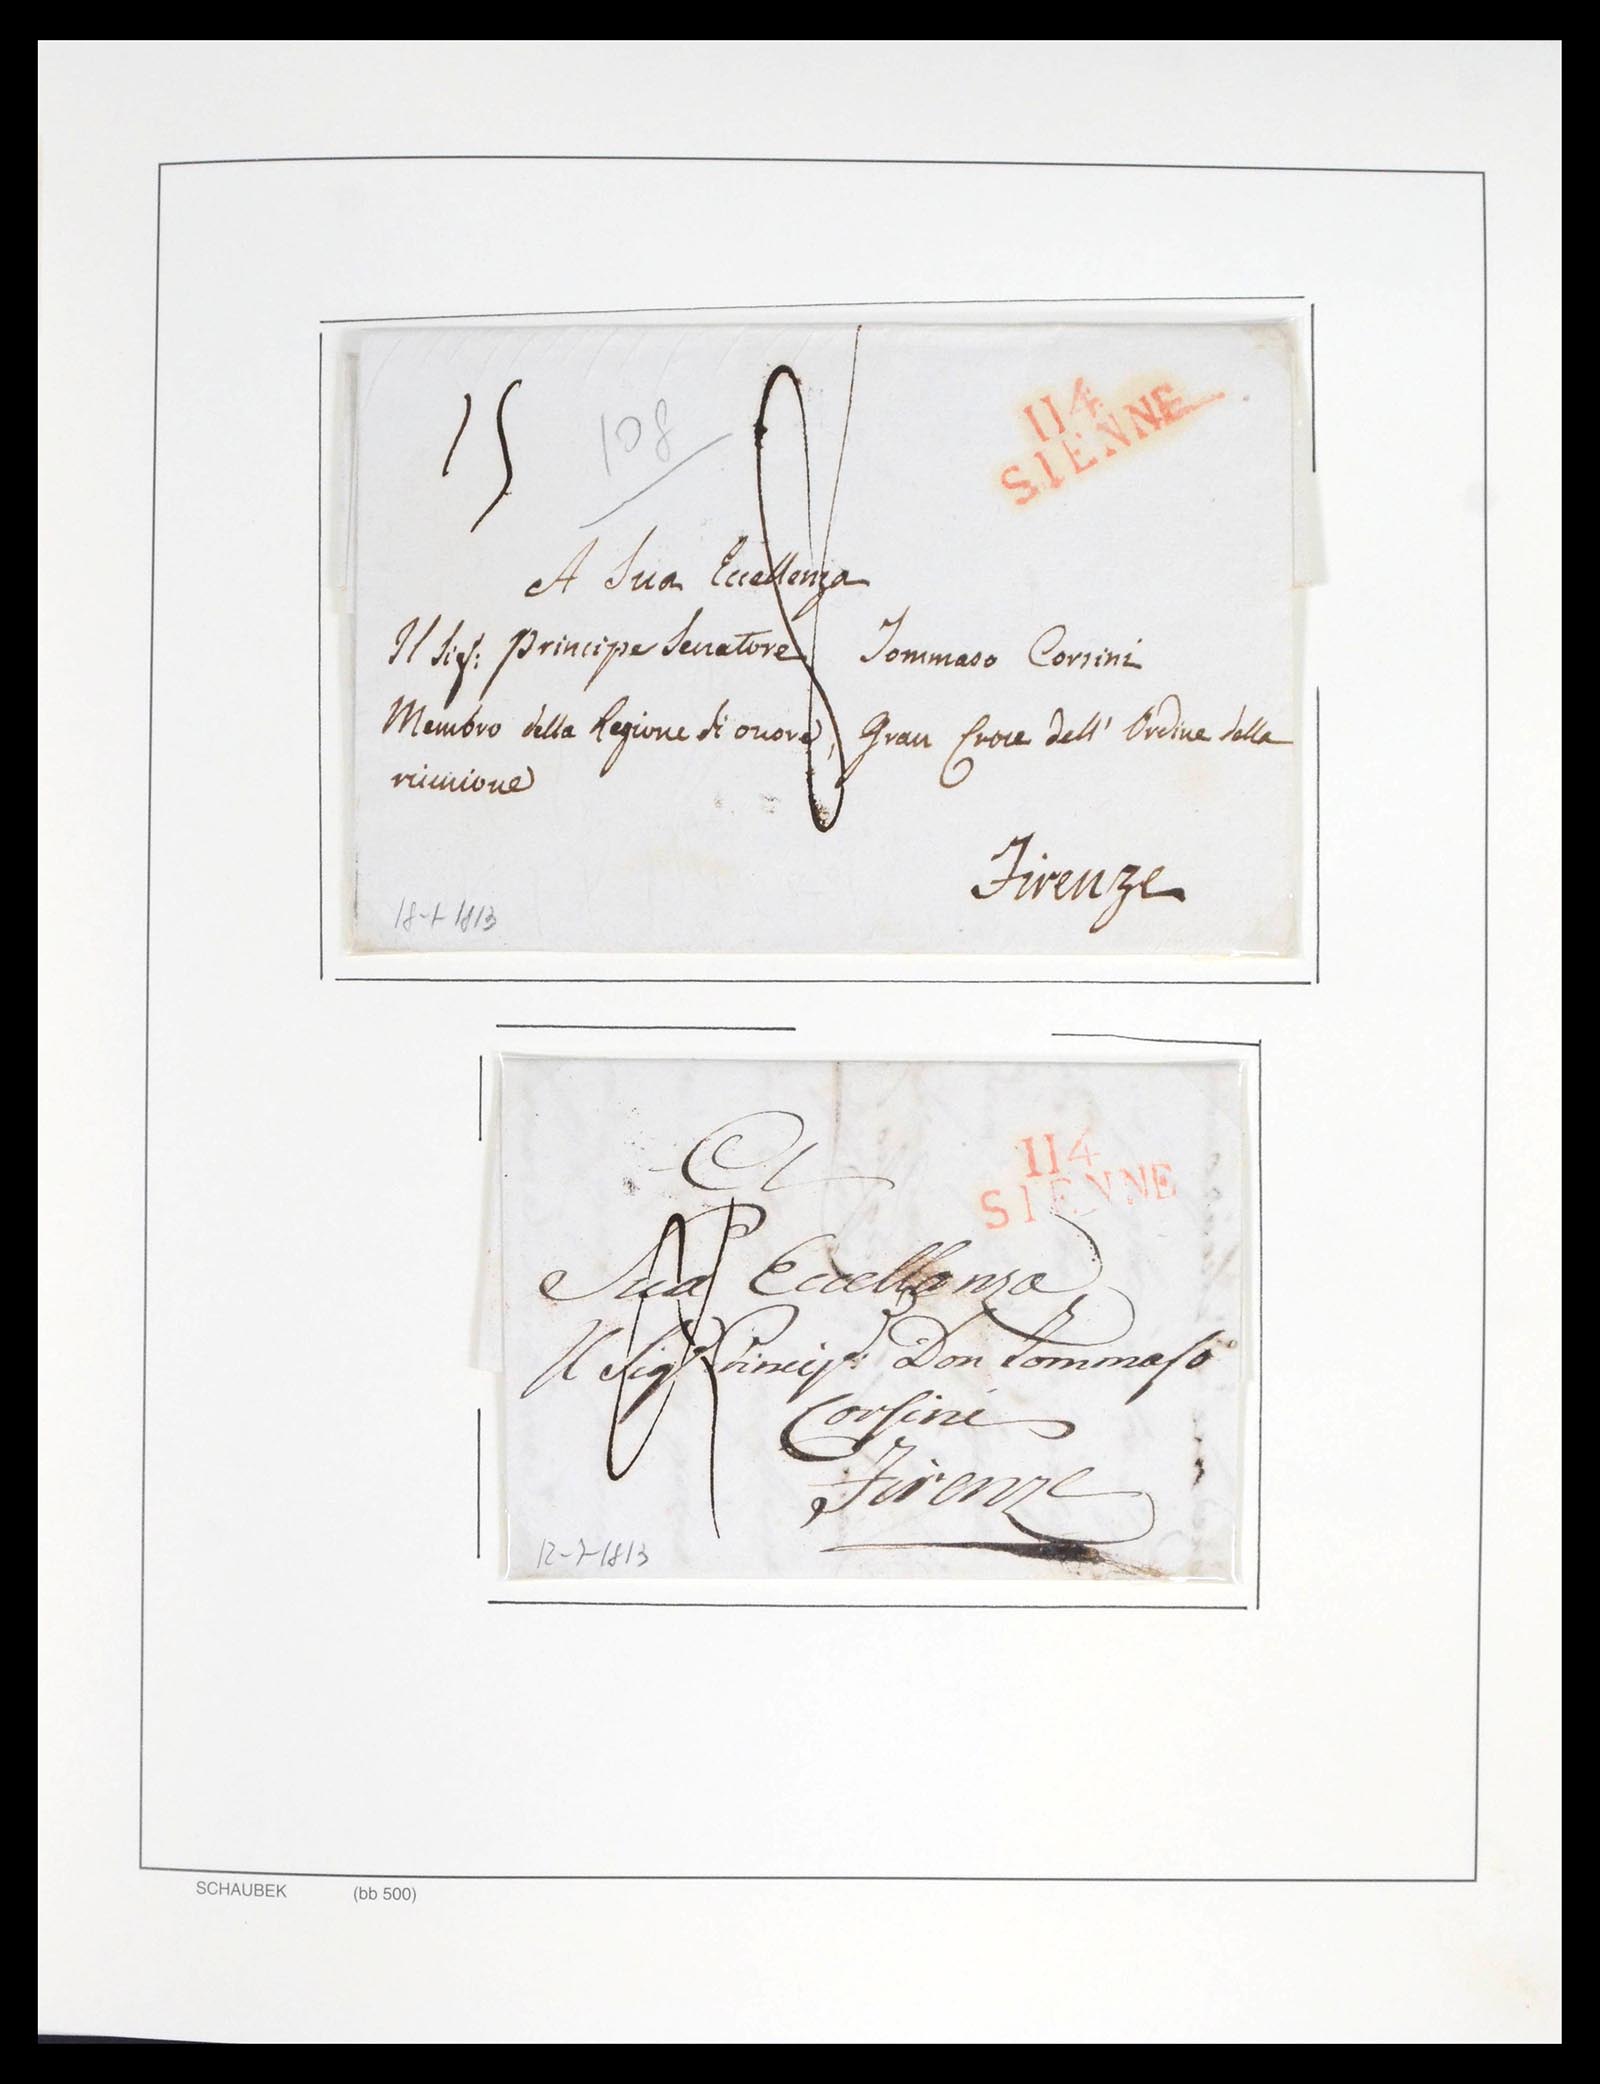 15
108
114
SIENNE
A Sua Eccellenza
Il Sig: Principe Senatore Tommaso Corsini
Membro della Legione di onore, Gran Croce dell' Ordine della
riunione
Firenze
18-1-1813
114
SIENNE
A
Sua Eccellenza
Il Sig.e Princip: Don Tommaso
Corsini
Firenze
12-7-1813
SCHAUBEK (bb 500)